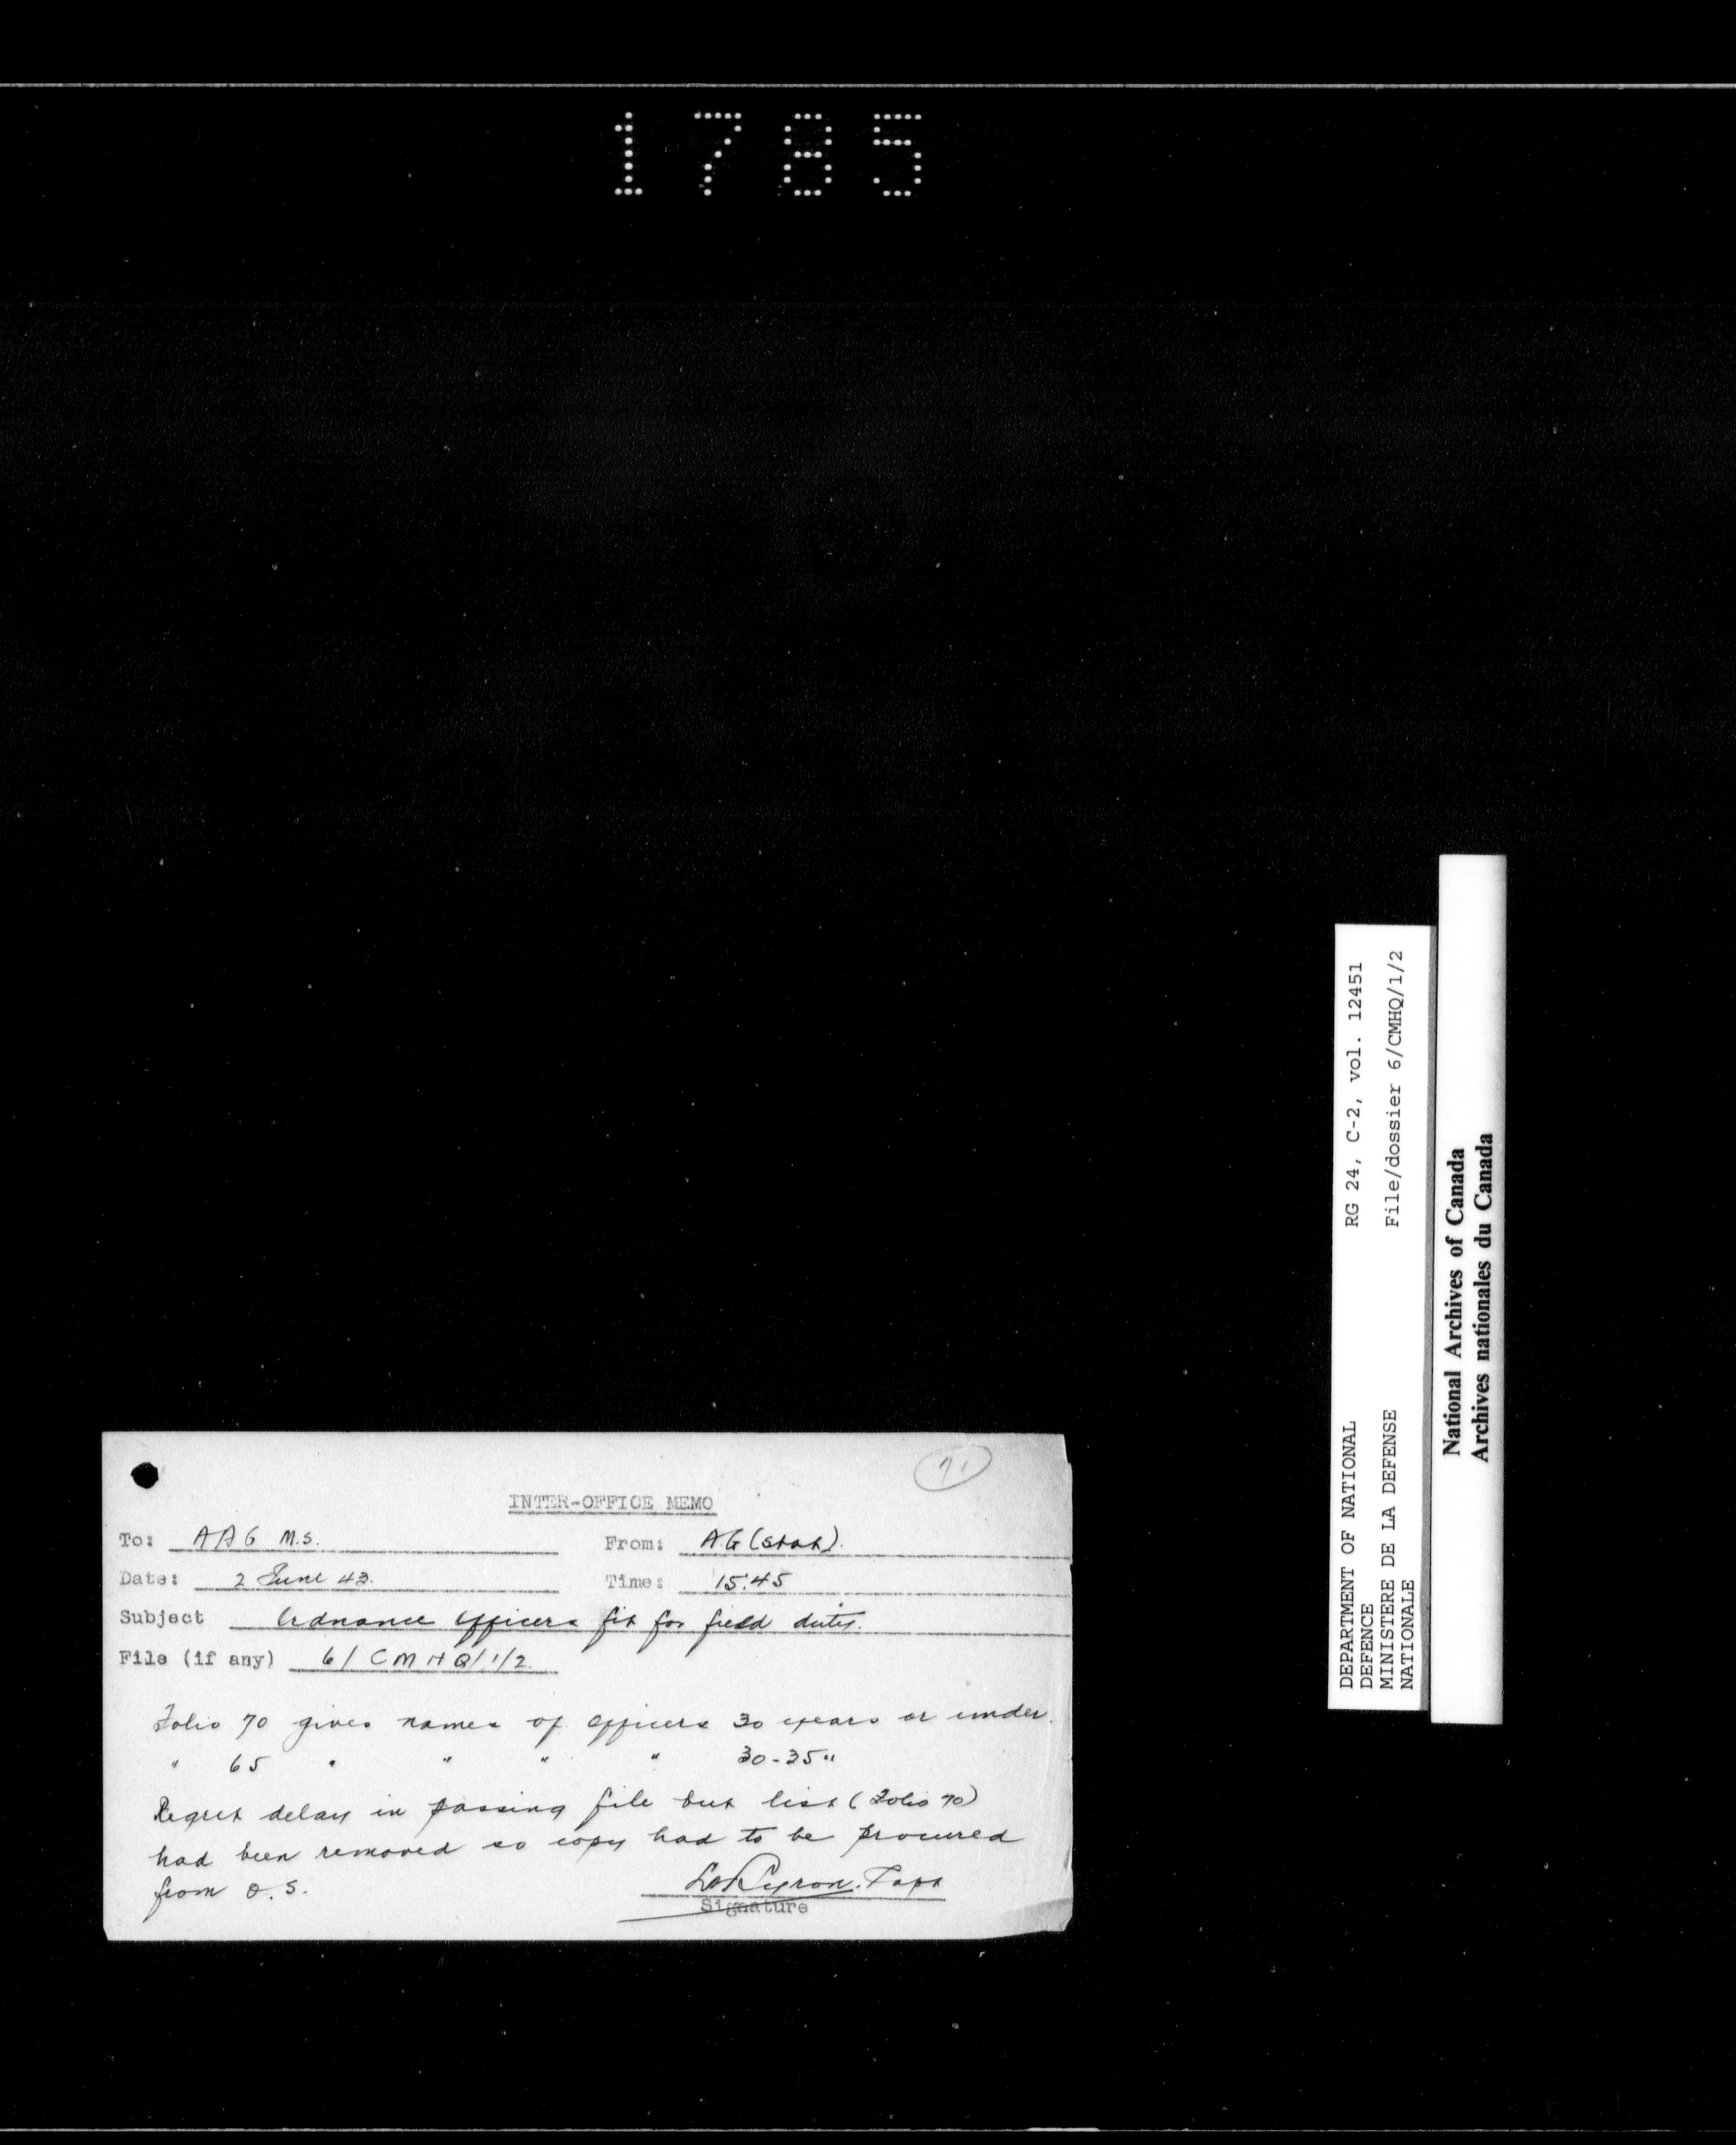 1785
71
INTER-OFFICE MEMO
To: AAG M.S. From: AG (Stat).
Date: 2 June 43. Time: 15.45
Subject Ordnance Officers fit for field duty.
File (if any) 6/CMHQ/1/2.
Folio 70 gives names of Officers 30 years or under.
" 65 " " " " 30-35 "
Regret delay in passing file but list (Folio 70)
had been removed so copy had to be procured
from O.S.
Signature
DEPARTMENT OF NATIONAL RG 24, C-2, vol. 12451
DEFENCE
MINISTERE DE LA DEFENSE File/dossier 6/CMHQ/1/2
NATIONALE
National Archives of Canada
Archives nationales du Canada